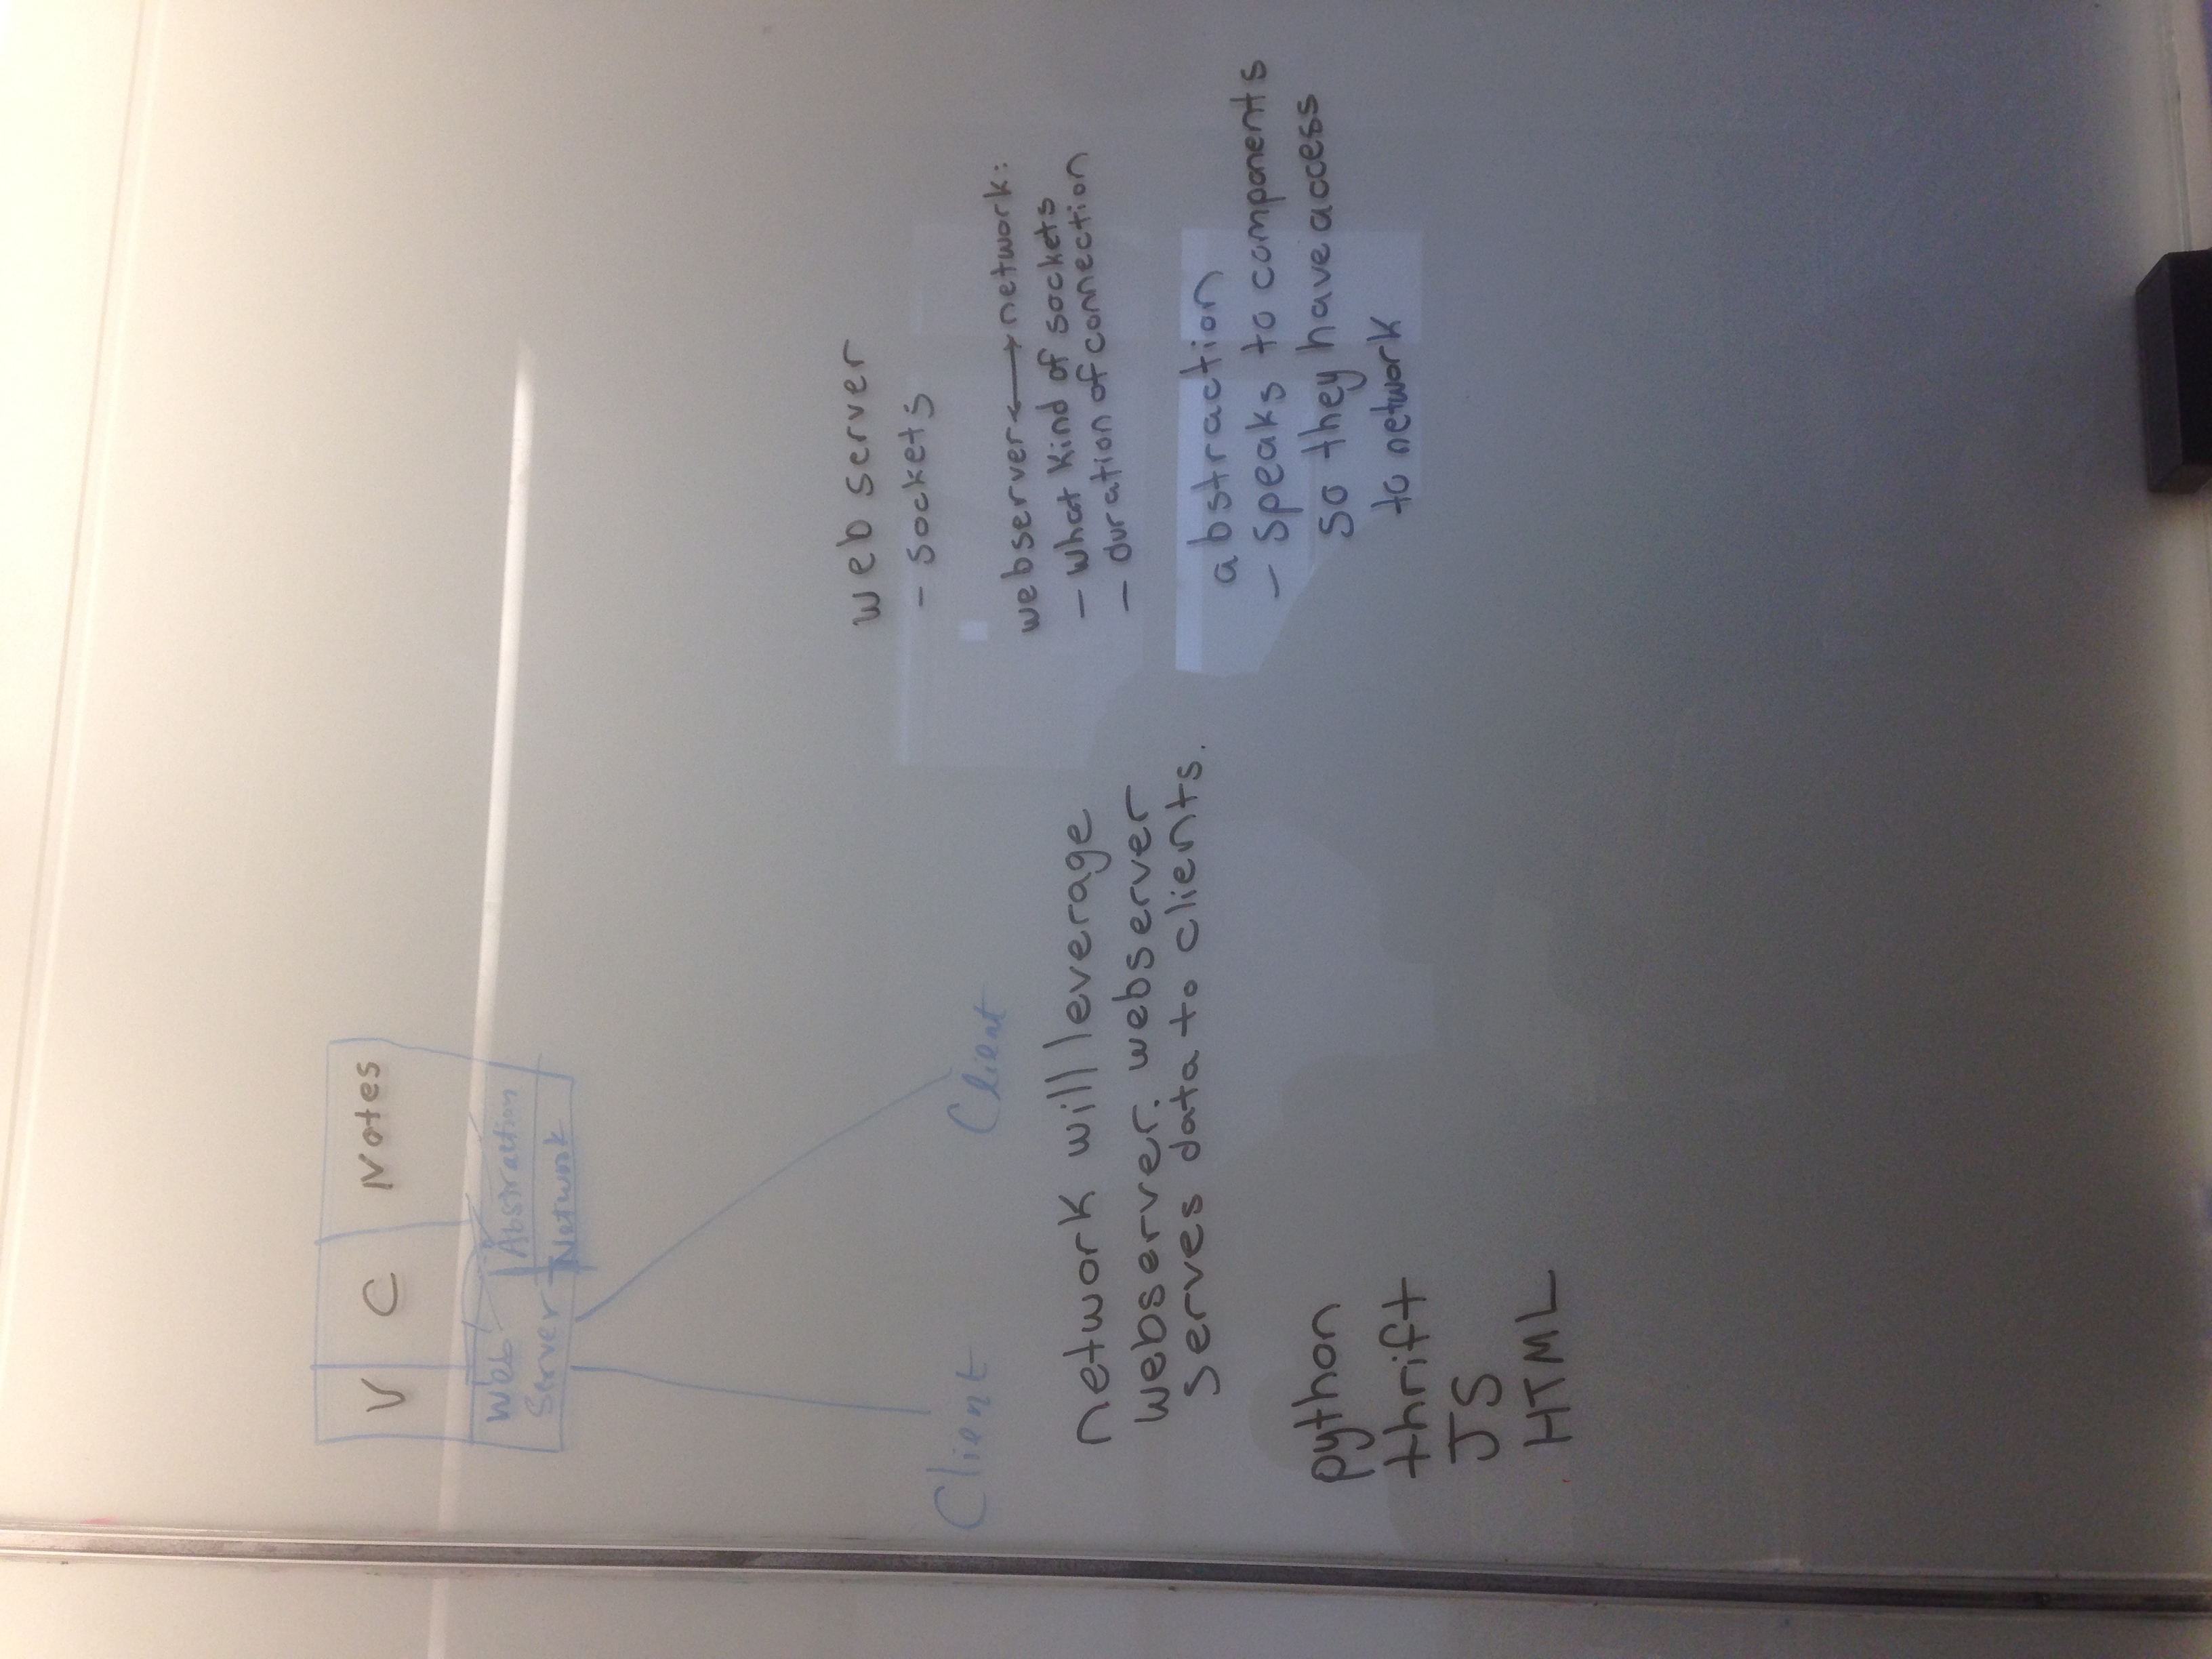 V C Notes
Web
Server
Abstraction
Network
Client Client
network will leverage
webserver. webserver
serves data to clients.
python
thrift
JS
HTML
web server
- sockets
webserver ⟷ network:
- what kind of sockets
- duration of connection
abstraction
- speaks to components
so they have access
to network